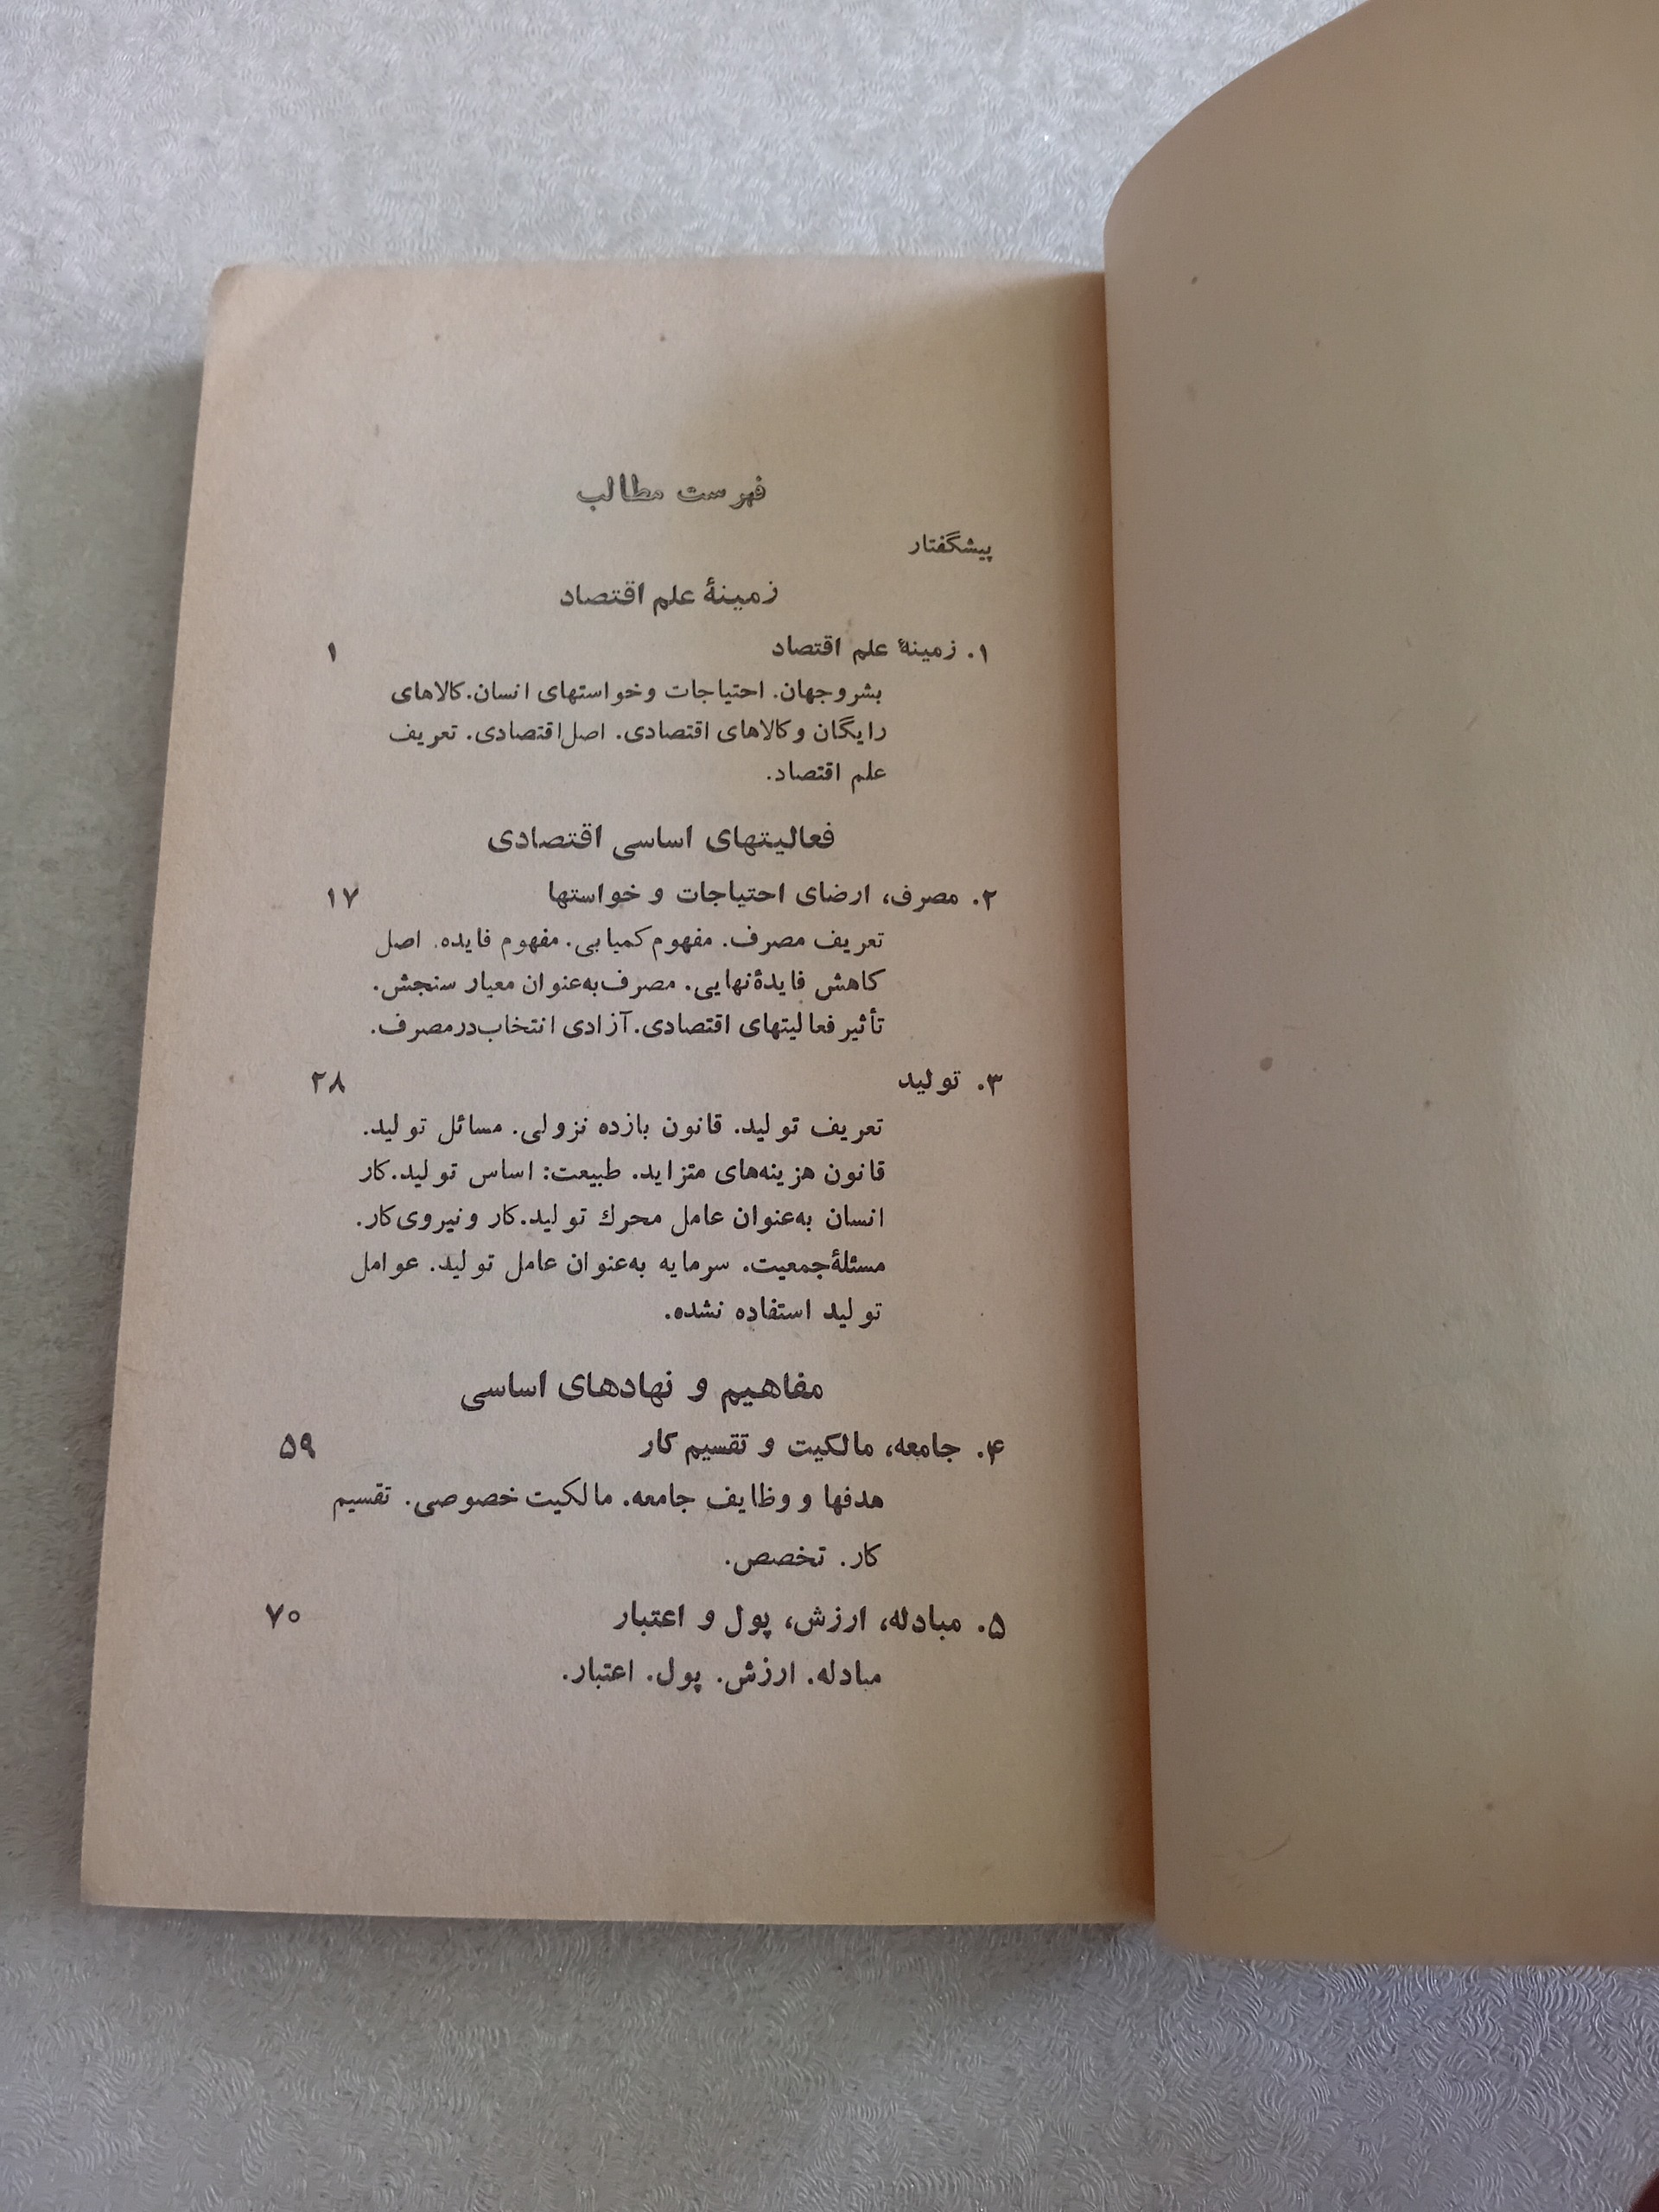 فهرست مطالب
پیشگفتار
زمینهٔ علم اقتصاد
۱. زمینهٔ علم اقتصاد ۱
بشر و جهان. احتیاجات و خواستهای انسان. کالاهای
رایگان و کالاهای اقتصادی. اصل اقتصادی. تعریف
علم اقتصاد.
فعالیتهای اساسی اقتصادی
۲. مصرف، ارضای احتیاجات و خواستها ۱۷
تعریف مصرف. مفهوم کمیابی. مفهوم فایده. اصل
کاهش فایدهٔ نهایی. مصرف به‌عنوان معیار سنجش.
تأثیر فعالیتهای اقتصادی. آزادی انتخاب در مصرف.
۳. تولید ۲۸
تعریف تولید. قانون بازده نزولی. مسائل تولید.
قانون هزینه‌های متزاید. طبیعت: اساس تولید. کار
انسان به‌عنوان عامل محرك تولید. کار و نیروی کار.
مسئلهٔ جمعیت. سرمایه به‌عنوان عامل تولید. عوامل
تولید استفاده نشده.
مفاهیم و نهادهای اساسی
۴. جامعه، مالکیت و تقسیم کار ۵۹
هدفها و وظایف جامعه. مالکیت خصوصی. تقسیم
کار. تخصص.
۵. مبادله، ارزش، پول و اعتبار ۷۰
مبادله. ارزش. پول. اعتبار.